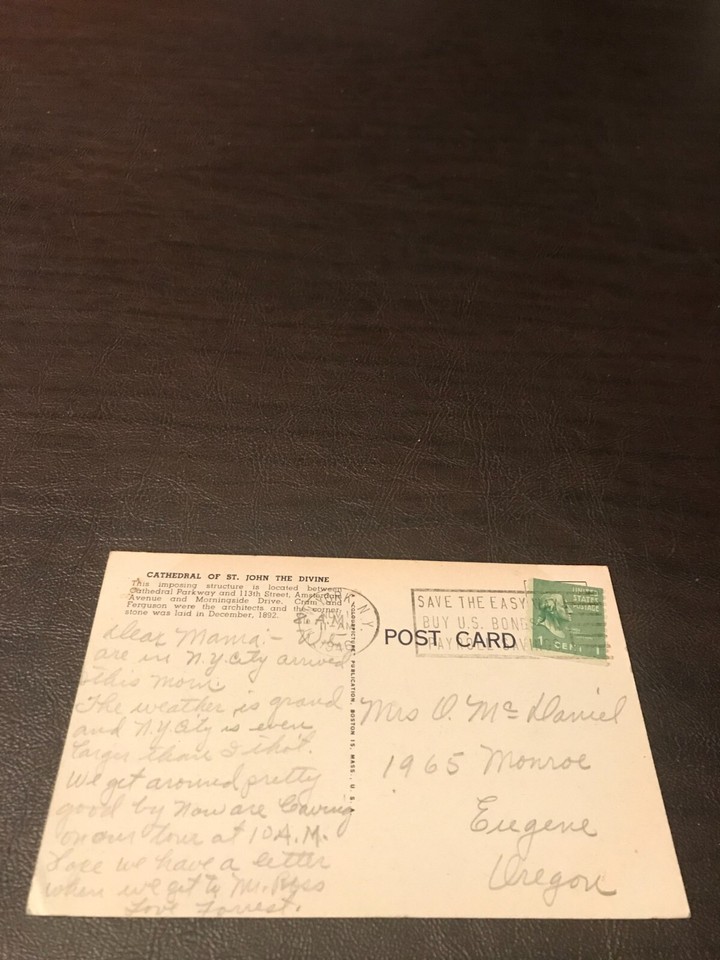 CATHEDRAL OF ST. JOHN THE DIVINE
This imposing structure is located between
Cathedral Parkway and 113th Street, Amsterdam
Avenue and Morningside Drive. Cram and
Ferguson were the architects and the corner
stone was laid in December, 1892.
8 A.M.
Dear Mama:- We
are in N.Y. City arrived
this morn.
The weather is grand
and N.Y. City is even
larger than I thot.
We get around pretty
good by now are leaving
on our tour at 10 A.M.
we have a letter
when we get to Mr.
Love Forrest.
"COLOURPICTURE" PUBLICATION, BOSTON 15, MASS., U. S. A.
N.Y.
1946
SAVE THE EASY
BUY U.S. BONDS
PAYROLL SAVIN
UNITED
STATES
POSTAGE
1 CENT 1
POST CARD
Mrs O. McDaniel
1965 Monroe
Eugene
Oregon